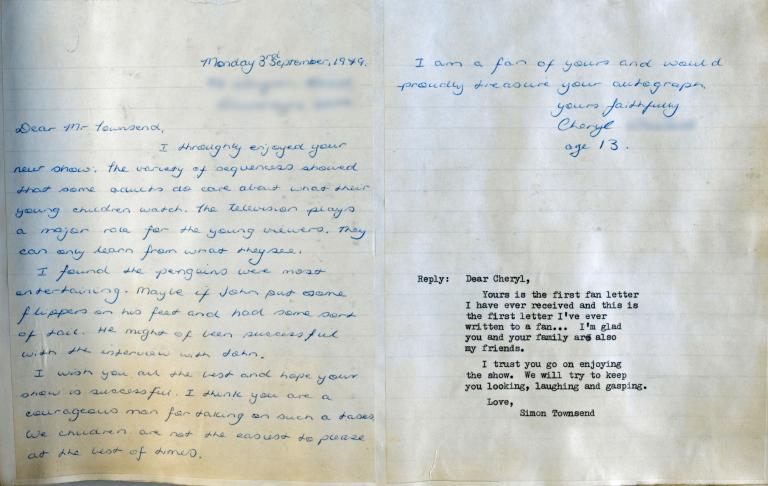 Monday 3rd September, 1979.
Dear Mr Townsend,
I throughly enjoyed your
new show. The variety of sequences showed
that some adults do care about what their
young children watch. The Television plays
a major role for the young viewers. They
can only learn from what they see.
I found the penguins were most
entertaining. Maybe if John put some
flippers on his feet and had some sort
of tail. He might of been successful
with the interview with John.
I wish you all the best and hope your
show is successful. I think you are a
courageous man for taking on such a
We children are not the easiest to please
at the best of times.
I am a fan of yours and would
proudly treasure your autograph.
yours faithfully
Cheryl
age 13.
Reply: Dear Cheryl,
Yours is the first fan letter
I have ever received and this is
the first letter I've ever
written to a fan... I'm glad
you and your family are also
my friends.
I trust you go on enjoying
the show. We will try to keep
you looking, laughing and gasping.
Love,
Simon Townsend